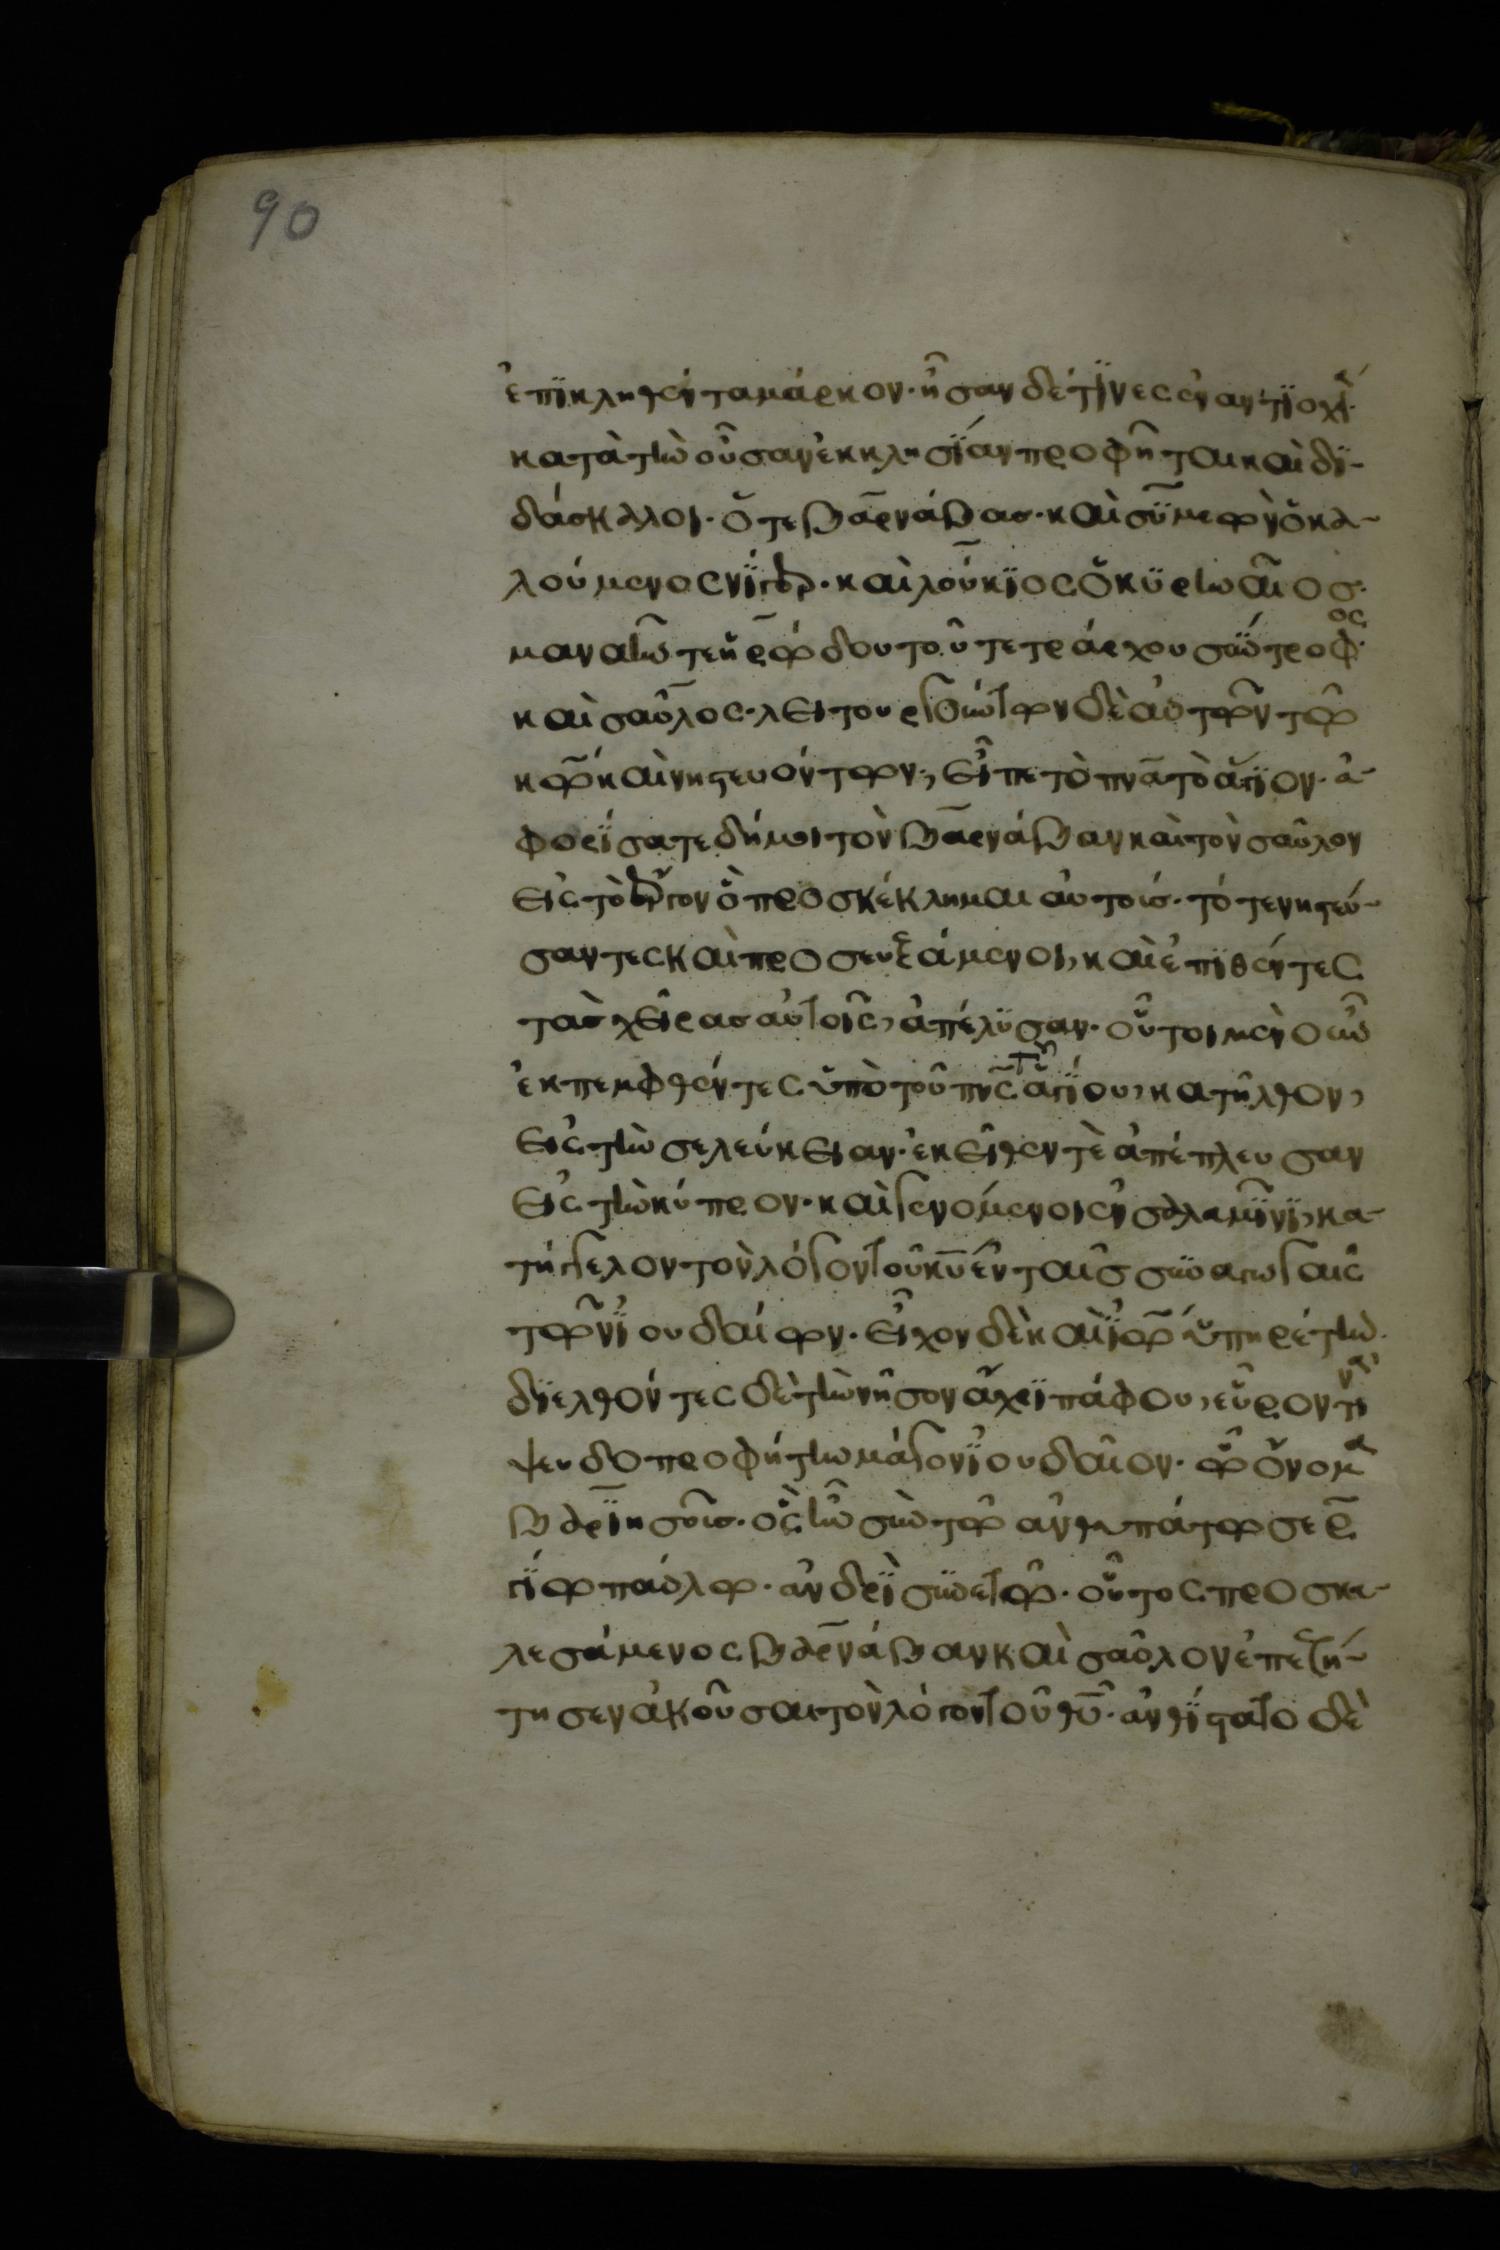 90
ἐπϊκληθέντα μάρκον· ἦσαν δέ τϊνες ἐν ἀντϊοχεί(ᾳ)
κατὰ τὴν οὖσαν ἐκκλησΐαν προφῆται καὶ δϊ-
δάσκαλοι· ὅ τε βαρνάβας· καὶ συμεὼν ὁ κα-
λούμενος νΐγερ· καὶ λούκϊος ὁ κϋρηναῖος·
μαναήν τε ἡρώδου τοῦ τετράρχου σύντροφος·
καὶ σαῦλος· λειτουργούντων δὲ αὐτῶν τῶ
κω καὶ νηστευόντων, εἶπε τὸ πνα τὸ ἅγϊον· ἀ-
φορΐσατε δή μοι τὸν βαρνάβαν καὶ τὸν σαῦλον
εἰς τὸ ἔργον ὃ προσκέκλημαι αὐτούς· τότε νηστεύ-
σαντες καὶ προσευξάμενοι, καὶ ἐπϊθέντες
τὰς χεῖρας αὐτοῖς, ἀπέλϋσαν· οὗτοι μὲν οὖν
ἐκπεμφθέντες ὑπὸ τοῦ πνς τοῦ ἁγΐου, κατῆλθον,
εἰς τὴν σελεύκειαν· ἐκεῖθεν τὲ ἀπέπλευσαν
εἰς τὴν κύπρον· καὶ γενόμενοι ἐν σαλαμῖνϊ, κα-
τήγγελον τὸν λόγον τοῦ κυ ἐν ταῖς συναγωγαῖς
τῶν ϊουδαίων· εἶχον δὲ καὶ ϊω ὑπηρέτην·
δϊελθόντες δὲ τὴν νῆσον ἄχρϊ πάφου, εὗρον τινὰ
ψευδοπροφήτην μάγον ϊουδαῖον· ᾧ ὄνομα
βαρϊησοῦς· ὃς ἦν σὺν τῶ ἀνθυπάτω σερ
γΐω παύλω· ἀνδρΐ συνετῶ· οὗτος προσκα-
λεσάμενος βαρνάβαν καὶ σαῦλον ἐπεζή-
τησεν ἀκοῦσαι τὸν λόγον τοῦ θυ· ἀνθΐστατο δὲ